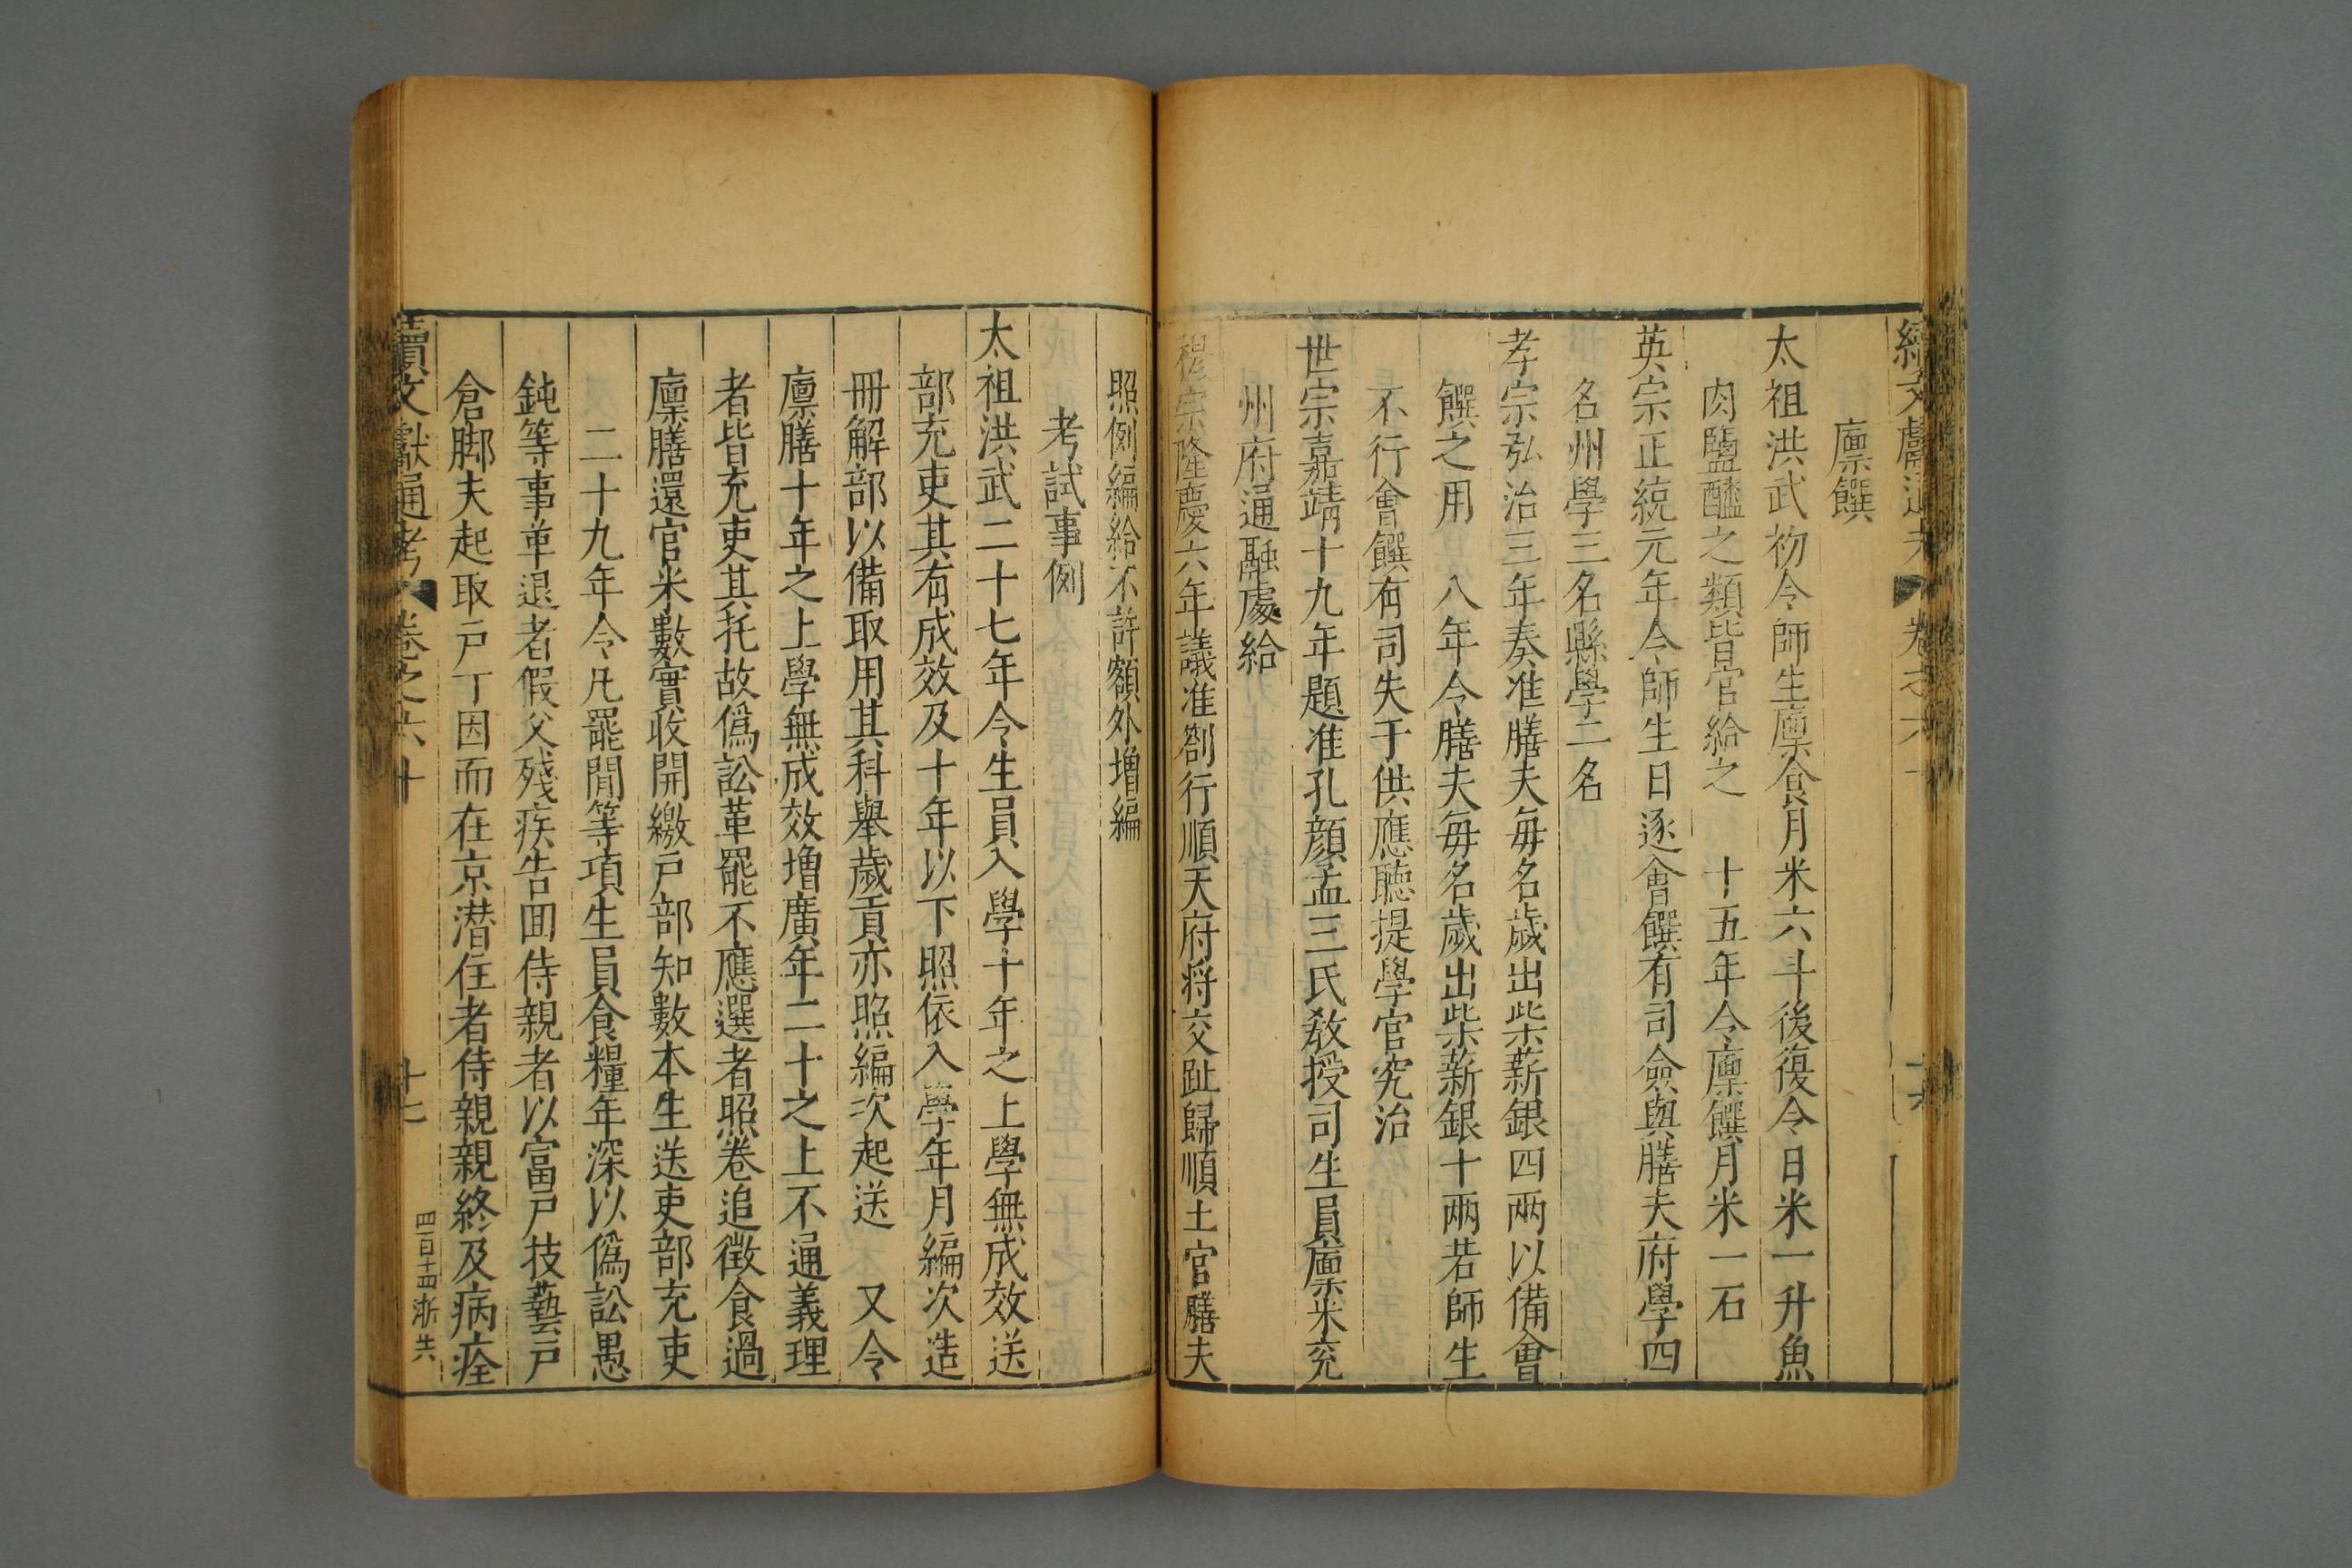 續文獻通考 卷之六十 十六
廪饌
太祖洪武初令師生廩食月米六斗後復令日米一升魚
肉鹽醯之類皆官給之 十五年令廩饌月米一石
英宗正統元年令師生日逐會饌有司僉與膳夫府學四
名州學三名縣學二名
孝宗弘治三年奏准膳夫每名歲出柴薪銀四兩以備會
饌之用 八年令膳夫每名歲出柴薪銀十兩若師生
不行會饌有司失于供應聽提學官究治
世宗嘉靖十九年題准孔顏孟三氏教授司生員廩米充
州府通融處給
穆宗隆慶六年議准劄行順天府將交趾歸順土官膳夫
照例編給不許額外增編
考試事例
太祖洪武二十七年令生員入學十年之上學無成效送
部充吏其有成效及十年以下照依入學年月編次造
冊解部以備取用其科舉歲貢亦照編次起送 又令
廪膳十年之上學無成效增廣年二十之上不通義理
者皆充吏其托故僞訟革罷不應選者照卷追徵食過
廪膳還官米數實收開繳戶部知數本生送吏部充吏
二十九年令凡罷閒等項生員食糧年深以僞訟愚
鈍等事革退者假父殘疾告回侍親者以富戶技藝戶
倉脚夫起取戶丁因而在京潛住者侍親親終及病痊
續文獻通考 卷之六十 十七
四百十四浙共